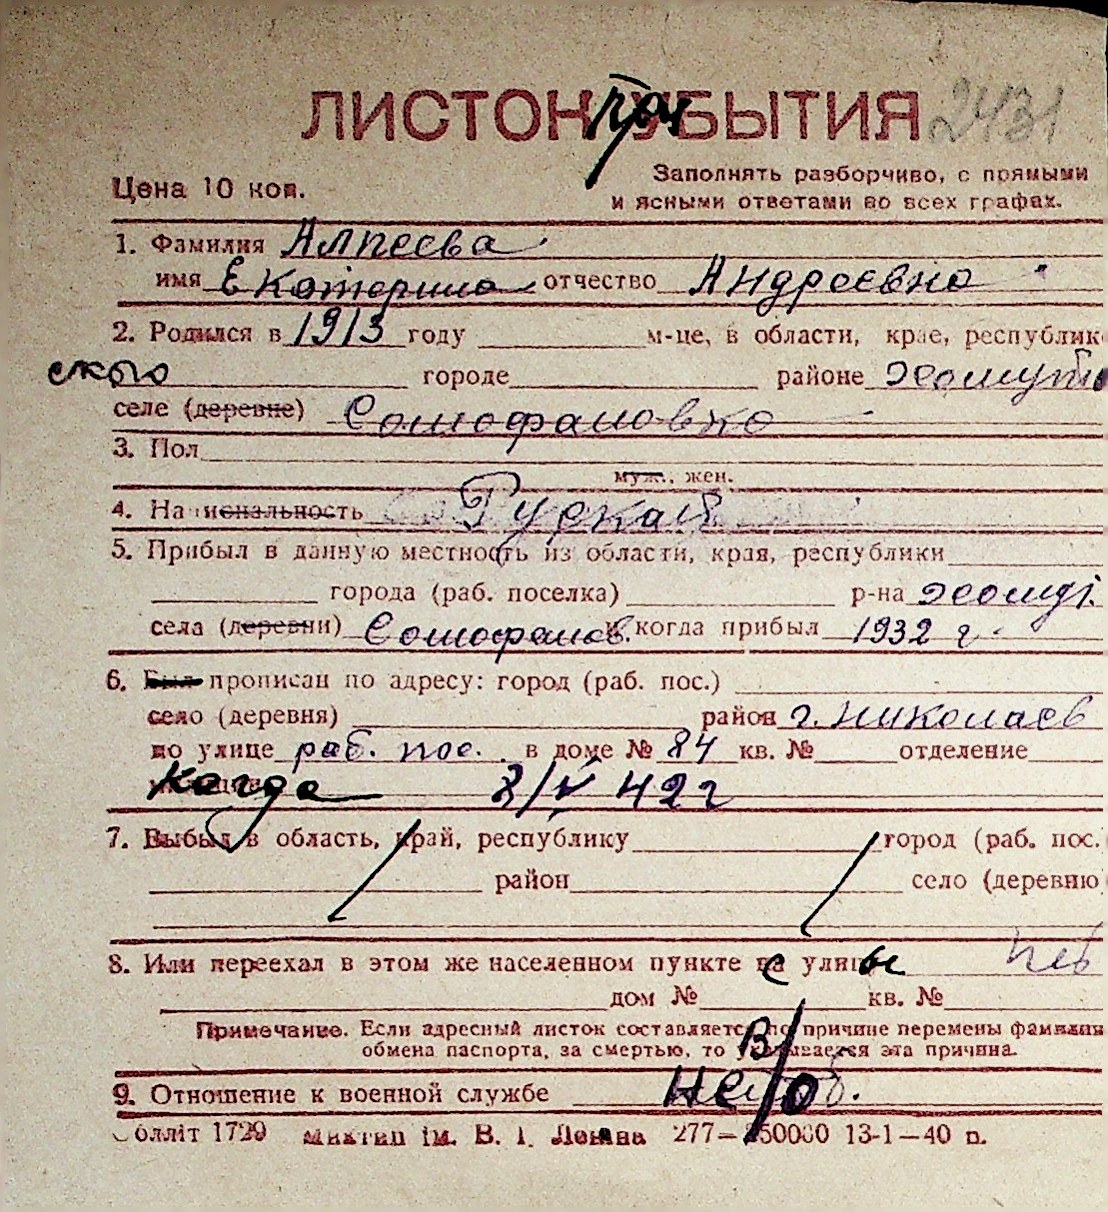 ЛИСТОК УБЫТИЯ 2431
Заполнять разборчиво, с прямыми
Цена 10 коп. и ясными ответами во всех графах.
1. Фамилия Алпеева
имя Екатерина отчество Андреевна
2. Родился в 1913 году м-це, в области, крае, республике
ского городе районе Хомуто
селе (деревне)
3. Пол
муж., жен.
4. Национальность Руская
5. Прибыл в данную местность из области, края, республики
города (раб. поселка) р-на Хомут.
села (деревни) и когда прибыл 1932 г.
6. Был прописан по адресу: город (раб. пос.)
село (деревня) район г. Николаев
по улице раб. пос. в доме № 84 кв. № отделение
когда 8/V 42 г
7. Выбыл в область, край, республику город (раб. пос.
район село (деревню
8. Или переехал в этом же населенном пункте на улицы
дом № кв. №
Примечание. Если адресный листок составляется по причине перемены фамилии
обмена паспорта, за смертью, то указывается эта причина.
9. Отношение к военной службе не/об.
Обллiт 1729 iм. В. I. Ленiна 277— 50000 13-1—40 п.